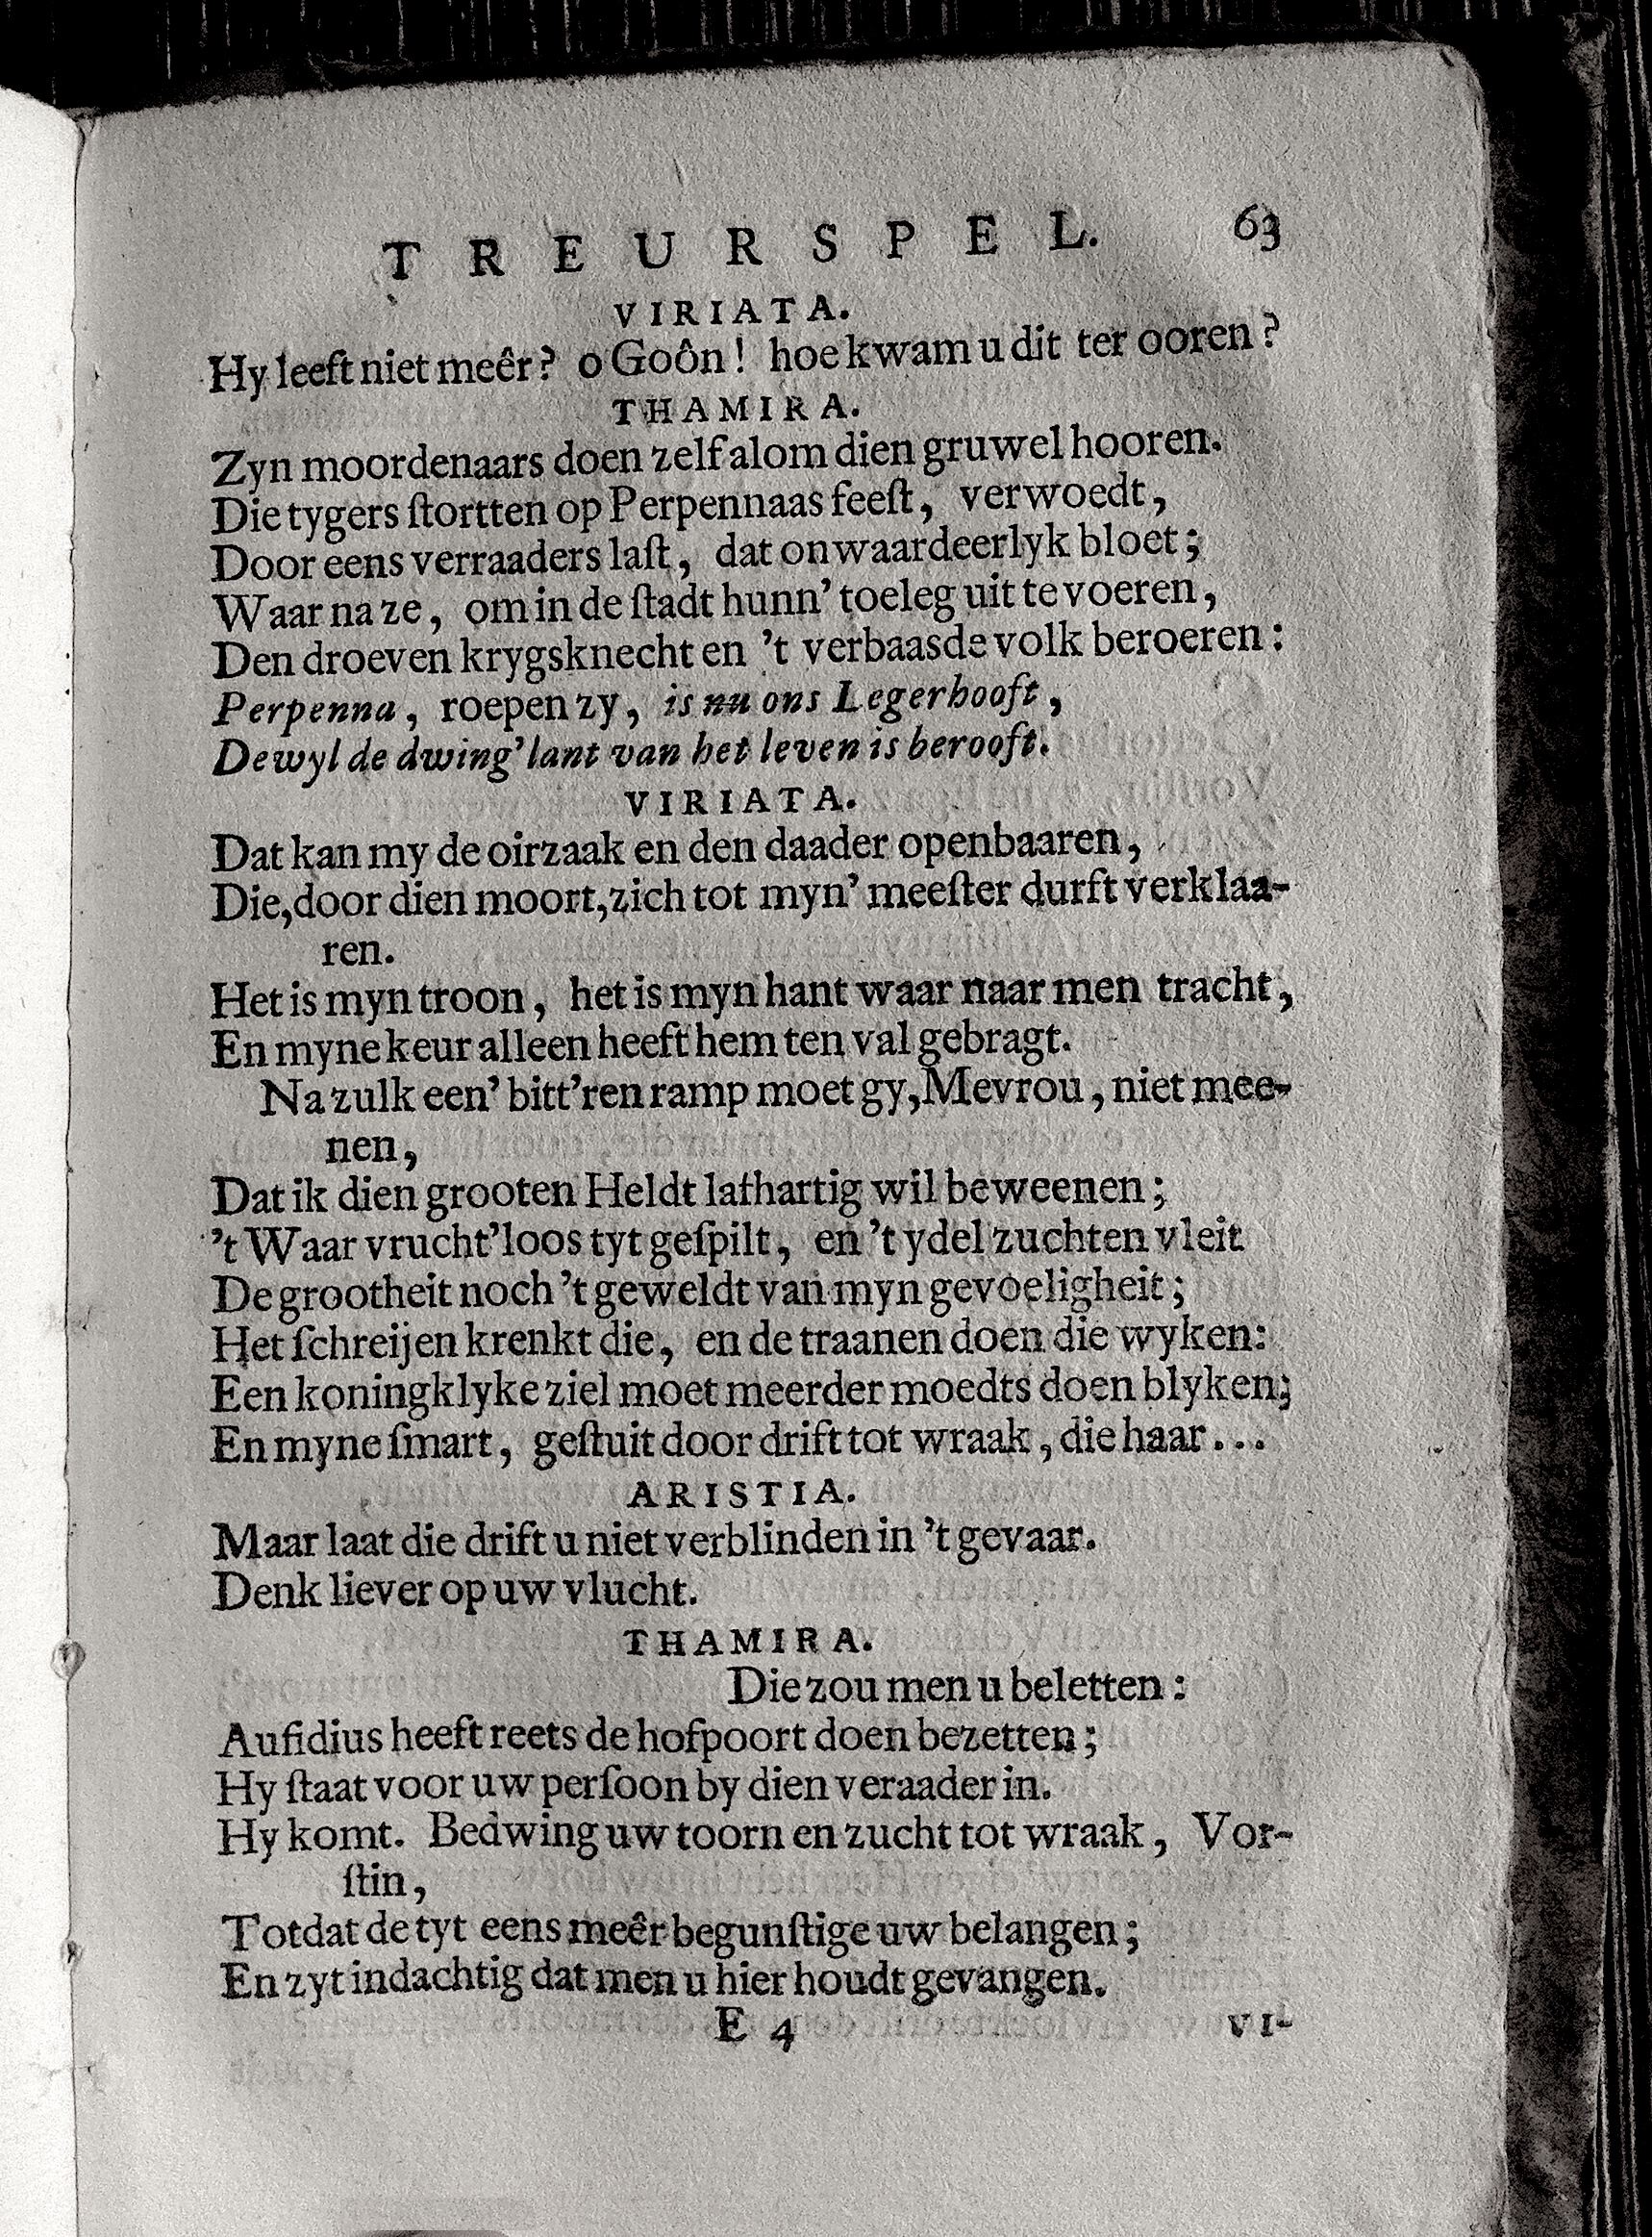 TREURSPEL. 63
VIRIATA.
Hy leeft niet meêr? o Goôn! hoe kwam u dit ter ooren?
THAMIRA.
Zyn moordenaars doen zelf alom dien gruwel hooren.
Die tygers ſtortten op Perpennaas feeſt, verwoedt,
Door eens verraaders laſt, dat onwaardeerlyk bloet;
Waar na ze, om in de ſtadt hunn' toeleg uit te voeren,
Den droeven krygsknecht en 't verbaasde volk beroeren:
Perpenna, roepen zy, is nu ons Legerhooft,
Dewyl de dwing'lant van het leven is berooft.
VIRIATA.
Dat kan my de oirzaak en den daader openbaaren,
Die, door dien moort, zich tot myn' meeſter durft verklaa-
ren.
Het is myn troon, het is myn hant waar naar men tracht,
En myne keur alleen heeft hem ten val gebragt.
Na zulk een' bitt'ren ramp moet gy, Mevrou, niet mee-
nen,
Dat ik dien grooten Heldt lafhartig wil beweenen;
't Waar vrucht'loos tyt geſpilt, en 't ydel zuchten vleit
De grootheit noch 't geweldt van myn gevoeligheit;
Het ſchreijen krenkt die, en de traanen doen die wyken:
Een koningklyke ziel moet meerder moedts doen blyken;
En myne ſmart, geſtuit door drift tot wraak, die haar...
ARISTIA.
Maar laat die drift u niet verblinden in 't gevaar.
Denk liever op uw vlucht.
THAMIRA.
Die zou men u beletten:
Aufidius heeft reets de hofpoort doen bezetten;
Hy ſtaat voor uw perſoon by dien veraader in.
Hy komt. Bedwing uw toorn en zucht tot wraak, Vor-
ſtin,
Totdat de tyt eens meêr begunſtige uw belangen;
En zyt indachtig dat men u hier houdt gevangen.
E 4 VI-